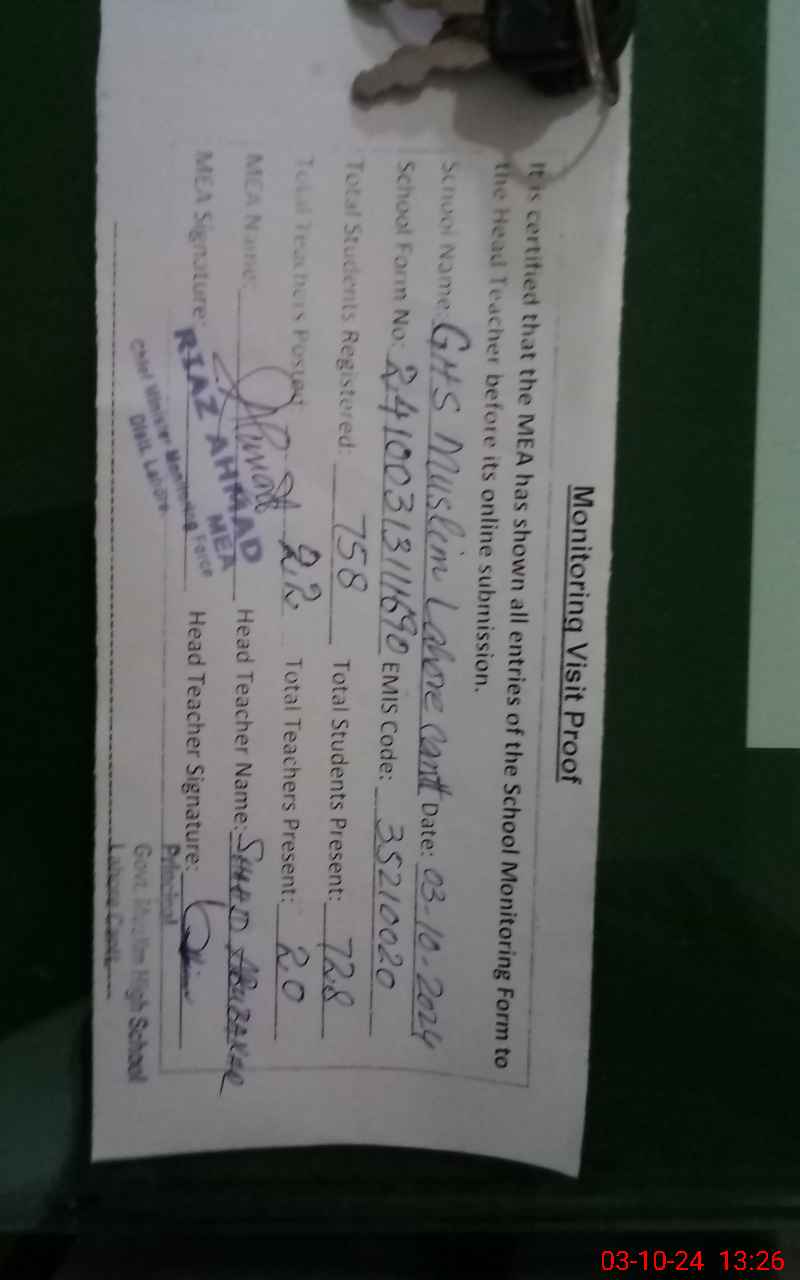 Monitoring Visit Proof
It is certified that the MEA has shown all entries of the School Monitoring Form to
the Head Teacher before its online submission.
School Name: GHS Muslim Lahore Cantt Date: 03-10-2024
School Form No: EMIS Code: 35210020
Total Students Registered: 758 Total Students Present: 728
Total Teachers Posted: 22 Total Teachers Present: 20
MEA Name: Head Teacher Name: ABUBAKAR
MEA Signature: Head Teacher Signature:
RIAZ AHMAD
MEA
Chief Minister Monitoring Force
Lahore
Principal
Govt. Muslim High School
Lahore Cantt
03-10-24 13:26